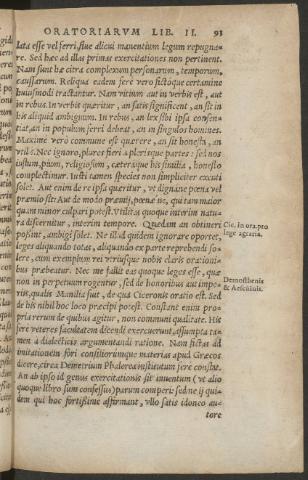 ORATORIARVM LIB. II. 93
lata esse vel ferri, siue alicui manentium legum repugna-
re. Sed hæc ad illas primas exercitationes non pertinent.
Nam sunt hæ citra complexum personarum, temporum,
caussarum. Reliqua eadem ferè vero fictóque certamine
huiusmodi tractantur. Nam vitium aut in verbis est, aut
in rebus. In verbis quæritur, an satis significent, an sit in
his aliquid ambiguum. In rebus, an lex sibi ipsa consen-
tiat, an in populum ferri debeat, an in singulos homines.
Maximè verò commune est quærere, an sit honesta, an
vtilis. Nec ignoro, plures fieri à plerisque partes: sed nos
iustum, pium, religiosum, cæteraque his similia, honesto
complectimur. Iusti tamen species non simpliciter excuti
solet. Aut enim de re ipsa quæritur, vt dignáne pœna vel
præmio sit: Aut de modo præmij, pœnæ ve, qui tam maior
quàm minor culpari potest. Vtilitas quoque interim natu-
ra discernitur, interim tempore. Quædam an obtineri
possint, ambigi solet. Ne illud quidem ignorare oportet,
leges aliquando totas, aliquando ex parte reprehendi so-
lere, cum exemplum rei vtriusque nobis claris orationi-
bus præbeatur. Nec me fallit eas quoque leges esse, quæ
non in perpetuum rogentur, sed de honoribus aut impe-
riis, qualis Manilia fuit, de qua Ciceronis oratio est. Sed
de his nihil hoc loco præcipi potest. Constant enim pro-
pria rerum de quibus agitur, non communi qualitate. His
ferè veteres facultatem dicendi exercuerunt, assumpta ta-
men à dialecticis argumentandi ratione. Nam fictas ad
imitationem fori consiliorúmque materias apud Græcos
dicere, circa Demetrium Phalerea institutum ferè constat.
An ab ipso id genus exercitationis sit inuentum (vt alio
quoque libro sum confessus) parum comperi: sed ne ij qui-
dem qui hoc fortissimè affirmant, vllo satis idoneo au-
tore
Cic. in ora. pro
lege agraria.
Demosthenis
& Aeschinis.